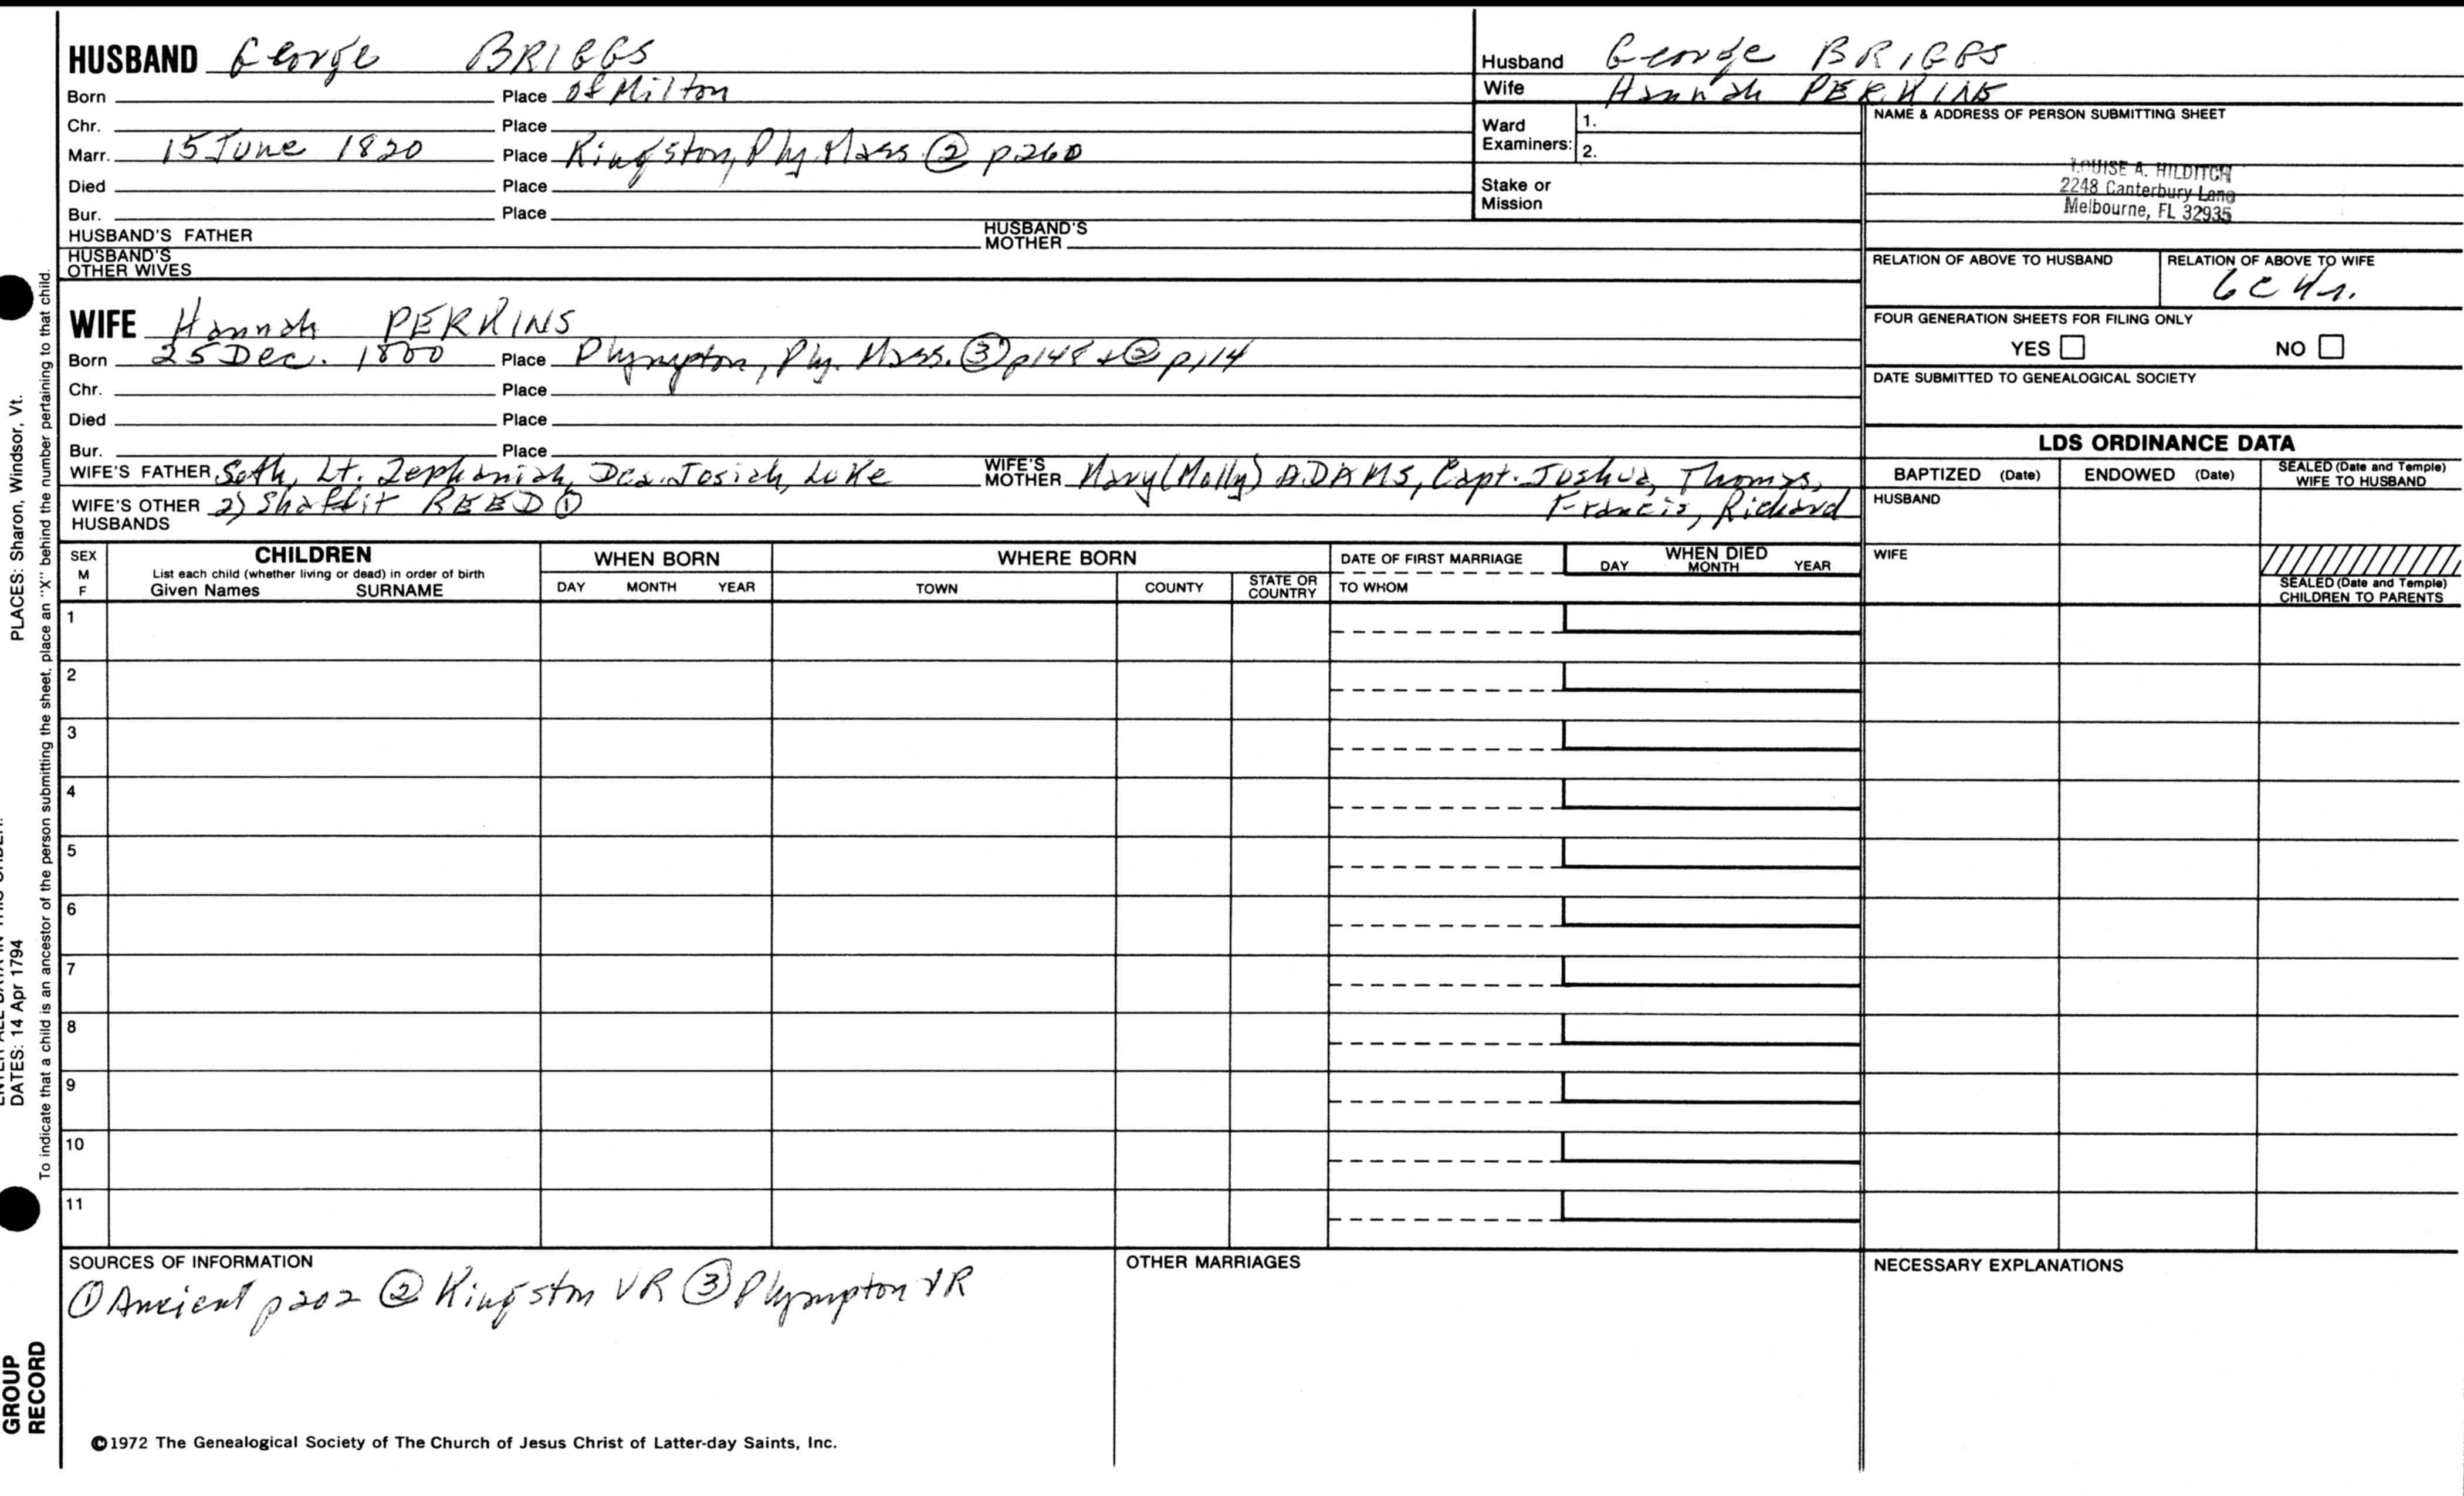 HUSBAND George BRIGGS
Born Place of Milton
Chr. Place
Marr. 15 June 1820 Place Kingston, Ply. Mass ② p260
Died Place
Bur. Place
HUSBAND'S FATHER HUSBAND'S MOTHER
HUSBAND'S OTHER WIVES
Husband George BRIGGS
Wife Hannah PERKINS
Ward Examiners: 1.
2.
Stake or Mission
NAME & ADDRESS OF PERSON SUBMITTING SHEET
LOUISE A. HILDITCH
2248 Canterbury Lane
Melbourne, FL 32935
RELATION OF ABOVE TO HUSBAND RELATION OF ABOVE TO WIFE
6C 4r.
FOUR GENERATION SHEETS FOR FILING ONLY
YES NO
DATE SUBMITTED TO GENEALOGICAL SOCIETY
WIFE Hannah PERKINS
Born 25 Dec. 1800 Place Plympton, Ply. Mass. ③ p148 + ② p114
Chr. Place
Died Place
Bur. Place
WIFE'S FATHER Seth, Lt. Zephaniah, Dea. Josiah, Luke WIFE'S MOTHER Mary (Molly) ADAMS, Capt. Joshua, Thomas,
Francis, Richard
WIFE'S OTHER HUSBANDS 2) REED ①
LDS ORDINANCE DATA
BAPTIZED (Date) ENDOWED (Date) SEALED (Date and Temple) WIFE TO HUSBAND
HUSBAND
WIFE
SEALED (Date and Temple) CHILDREN TO PARENTS
SEX M F
CHILDREN
List each child (whether living or dead) in order of birth
Given Names SURNAME
WHEN BORN
DAY MONTH YEAR
WHERE BORN
TOWN COUNTY STATE OR COUNTRY
DATE OF FIRST MARRIAGE
TO WHOM
WHEN DIED
DAY MONTH YEAR
1
2
3
4
5
6
7
8
9
10
11
SOURCES OF INFORMATION
① Ancient p202 ② Kingston VR ③ Plympton VR
OTHER MARRIAGES
NECESSARY EXPLANATIONS
©1972 The Genealogical Society of The Church of Jesus Christ of Latter-day Saints, Inc.
PLACES: Sharon, Windsor, Vt.
DATES: 14 Apr 1794
To indicate that a child is an ancestor of the person submitting the sheet, place an "X" behind the number pertaining to that child.
GROUP
RECORD